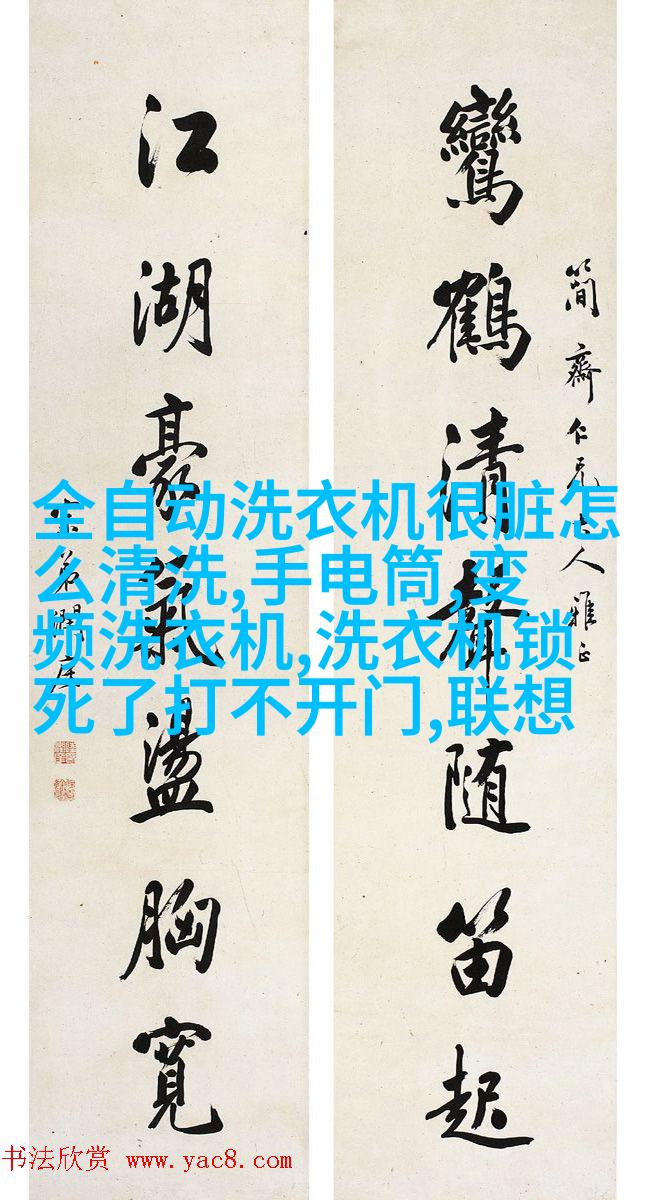 鸞鶴清聲随笛起
簡齋仁兄大人雅正
江湖豪氣盪胸寬
全自动洗衣机很脏怎
么清洗,手电筒,变
频洗衣机,洗衣机锁
死了打不开门,联想
书法欣赏 www.yac8.com